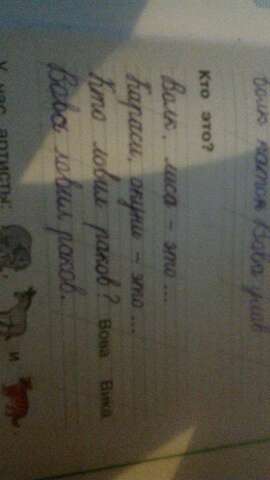 Вова
Кто это?
Волк, лиса – это ...
Караси, окуни – это ...
Кто ловил раков? Вова Вика
Вова ловил раков.
У нас артисты: , и ,